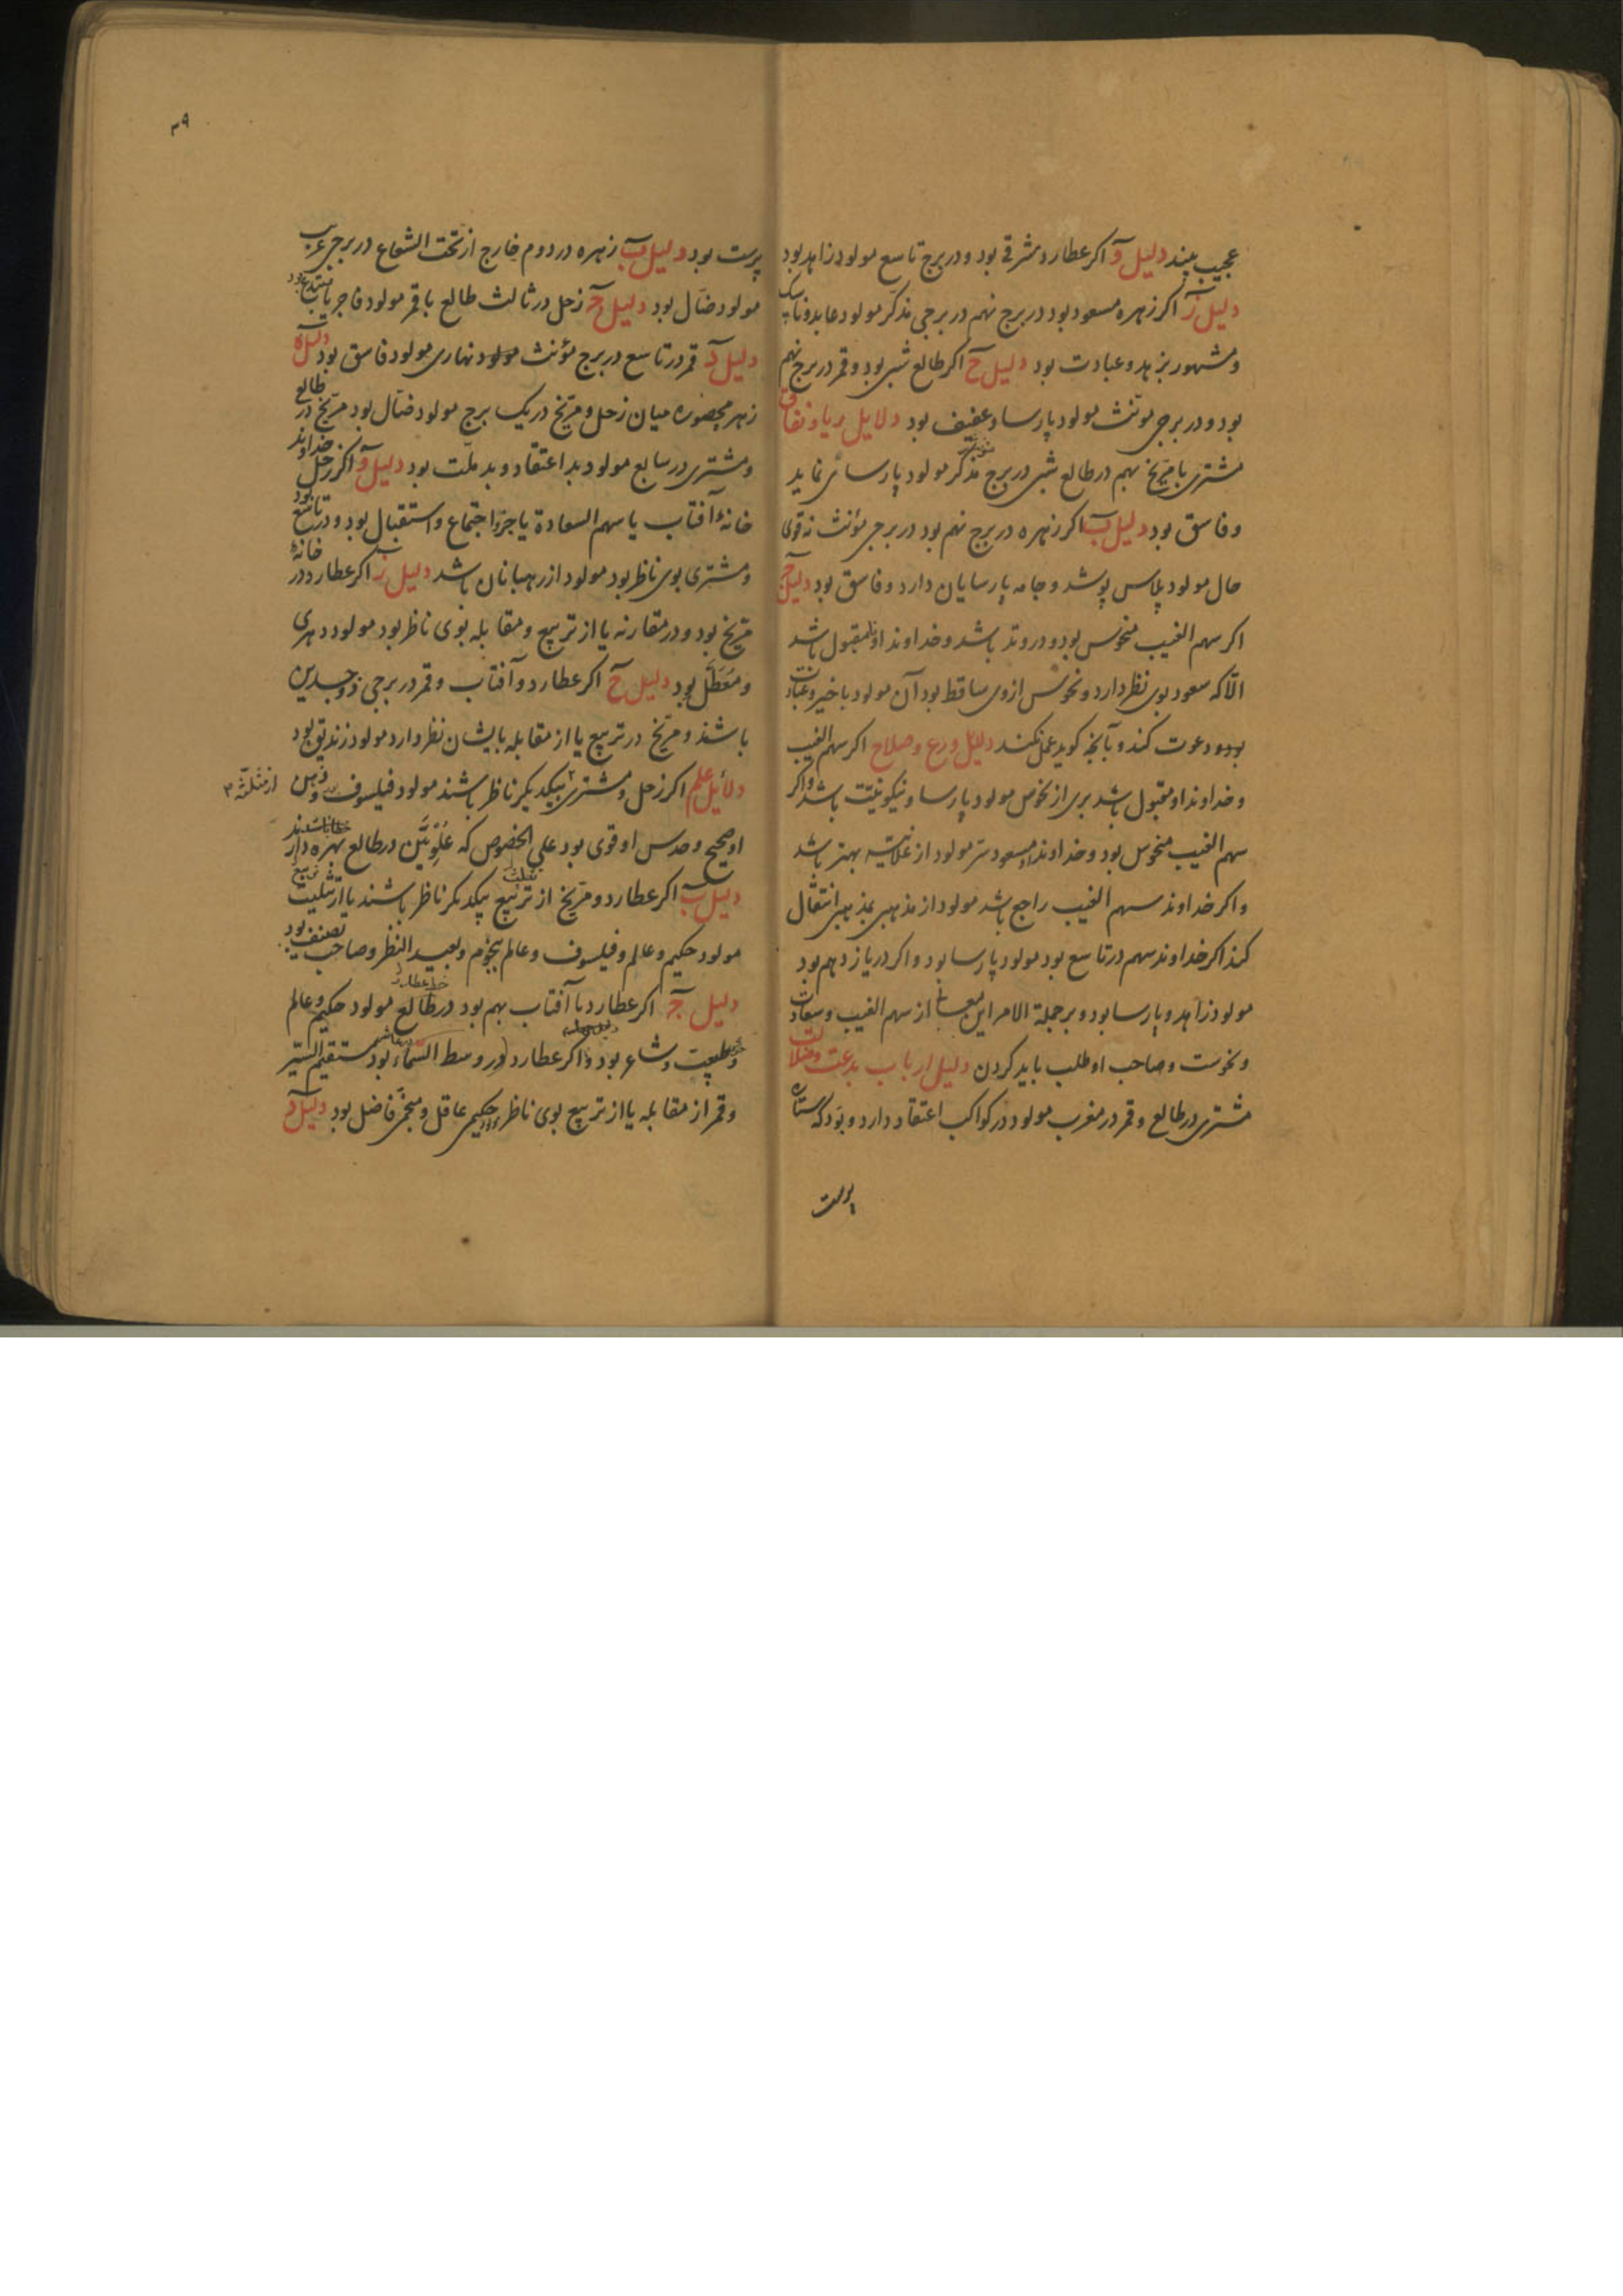 عجیب بیند دلیل و اکر عطارد مشرقی بود و در برج تاسع مولود زاهد بود
دلیل ز اکر زهره مسعود بود در برج نهم در برجی مذکّر مولود عابد و ناسک
و مشهور بزهد و عبادت بود دلیل ح اکر طالع شبی بود و قمر در برج نهم
بود و در برجی مونّث مولود پارسا و عفیف بود دلایل ریا و نفاق
مشتری با مرّیخ بهم در طالع شبی در برج مذکر مولود پارسائی نماید
و فاسق بود دلیل ب اکر زهره در برج نهم بود در برجی مؤنث نه قوی
حال مولود پلاس پوشد و جامه پارسایان دارد و فاسق بود دلیل ج
اکر سهم الغیب منحوس بود و در وتد باشد و خداوند او نامقبول باشد
الّا که سعود بوی نظر دارد و نحوس از وی ساقط بود آن مولود با خیر و عبادت
بود و دعوت کند و بآنچه کوید عمل نکند دلیل ورع و صلاح اکر سهم الغیب
و خداوند او مقبول باشد بری از نحوس مولود پارسا و نیکو نیّت باشد و اکر
سهم الغیب منحوس بود و خداوند او مسعود سرّ مولود از علانیّه بهتر باشد
و اکر خداوند سهم الغیب راجع باشد مولود از مذهبی بمذهبی انتقال
کند اکر خداوند سهم در تاسع بود مولود پارسا بود و اکر در یازدهم بود
مولود زاهد و پارسا بود و بر جملة الامر این از سهم الغیب و سعادت
و نحوست و صاحب او طلب باید کردن دلیل ارباب بدعت و ضلالت
مشتری در طالع و قمر در مغرب مولود در کواکب اعتقاد دارد و بود که ستاره
پرست
۳۹
پرست بود دلیل ب زهره در دوم خارج از تحت الشعاع در برجی غریب
مولود ضالّ بود دلیل ج زحل در ثالث طالع با قمر مولود فاجر یا مبتدع بود
دلیل د قمر در تاسع در برج مؤنث مولود نهاری مولود فاسق بود دلیل ه
زهره محصوره میان زحل و مرّیخ در یک برج مولود ضالّ بود مرّیخ در طالع
و مشتری در سابع مولود بد اعتقاد و بد ملّت بود دلیل و اکر زحل خداوند
خانهٔ آفتاب یا سهم السعادة یا جزو اجتماع و استقبال بود و در تاسع بود
و مشتری بوی ناظر بود مولود از رهبانان باشد دلیل ز اکر عطارد در خانهٔ
مرّیخ بود و در مقارنه یا از تربیع و مقابله بوی ناظر بود مولود دهری
و مُعَطّل بود دلیل ح اکر عطارد و آفتاب و قمر در برجی ذو جسدین
باشند و مرّیخ در تربیع یا از مقابله بایشان نظر دارد مولود زندیق بود
دلائل علم اکر زحل و مشتری بیکدیکر ناظر باشند مولود فیلسوف و ذهن
از مثلّثه ۳
او صحیح و حدس او قوی بود علی الخصوص که عُلْوِیَّیْن در طالع بهره دار
دلیل ب اکر عطارد و مرّیخ از تربیع بیکدیکر ناظر باشند یا از تثلیث
تثلیث
تربیع
مولود حکیم و عالم و فیلسوف و عالم بنجوم و بعید النظر و صاحب تصنیف بود
دلیل ج اکر عطارد با آفتاب بهم بود در طالع مولود حکیم و عالم
و شاعر بود و اکر عطارد در وسط السّماء بود مستقیم السّیر
و قمر از مقابله یا از تربیع بوی ناظر حکیمی عاقل و منجّمی فاضل بود دلیل د